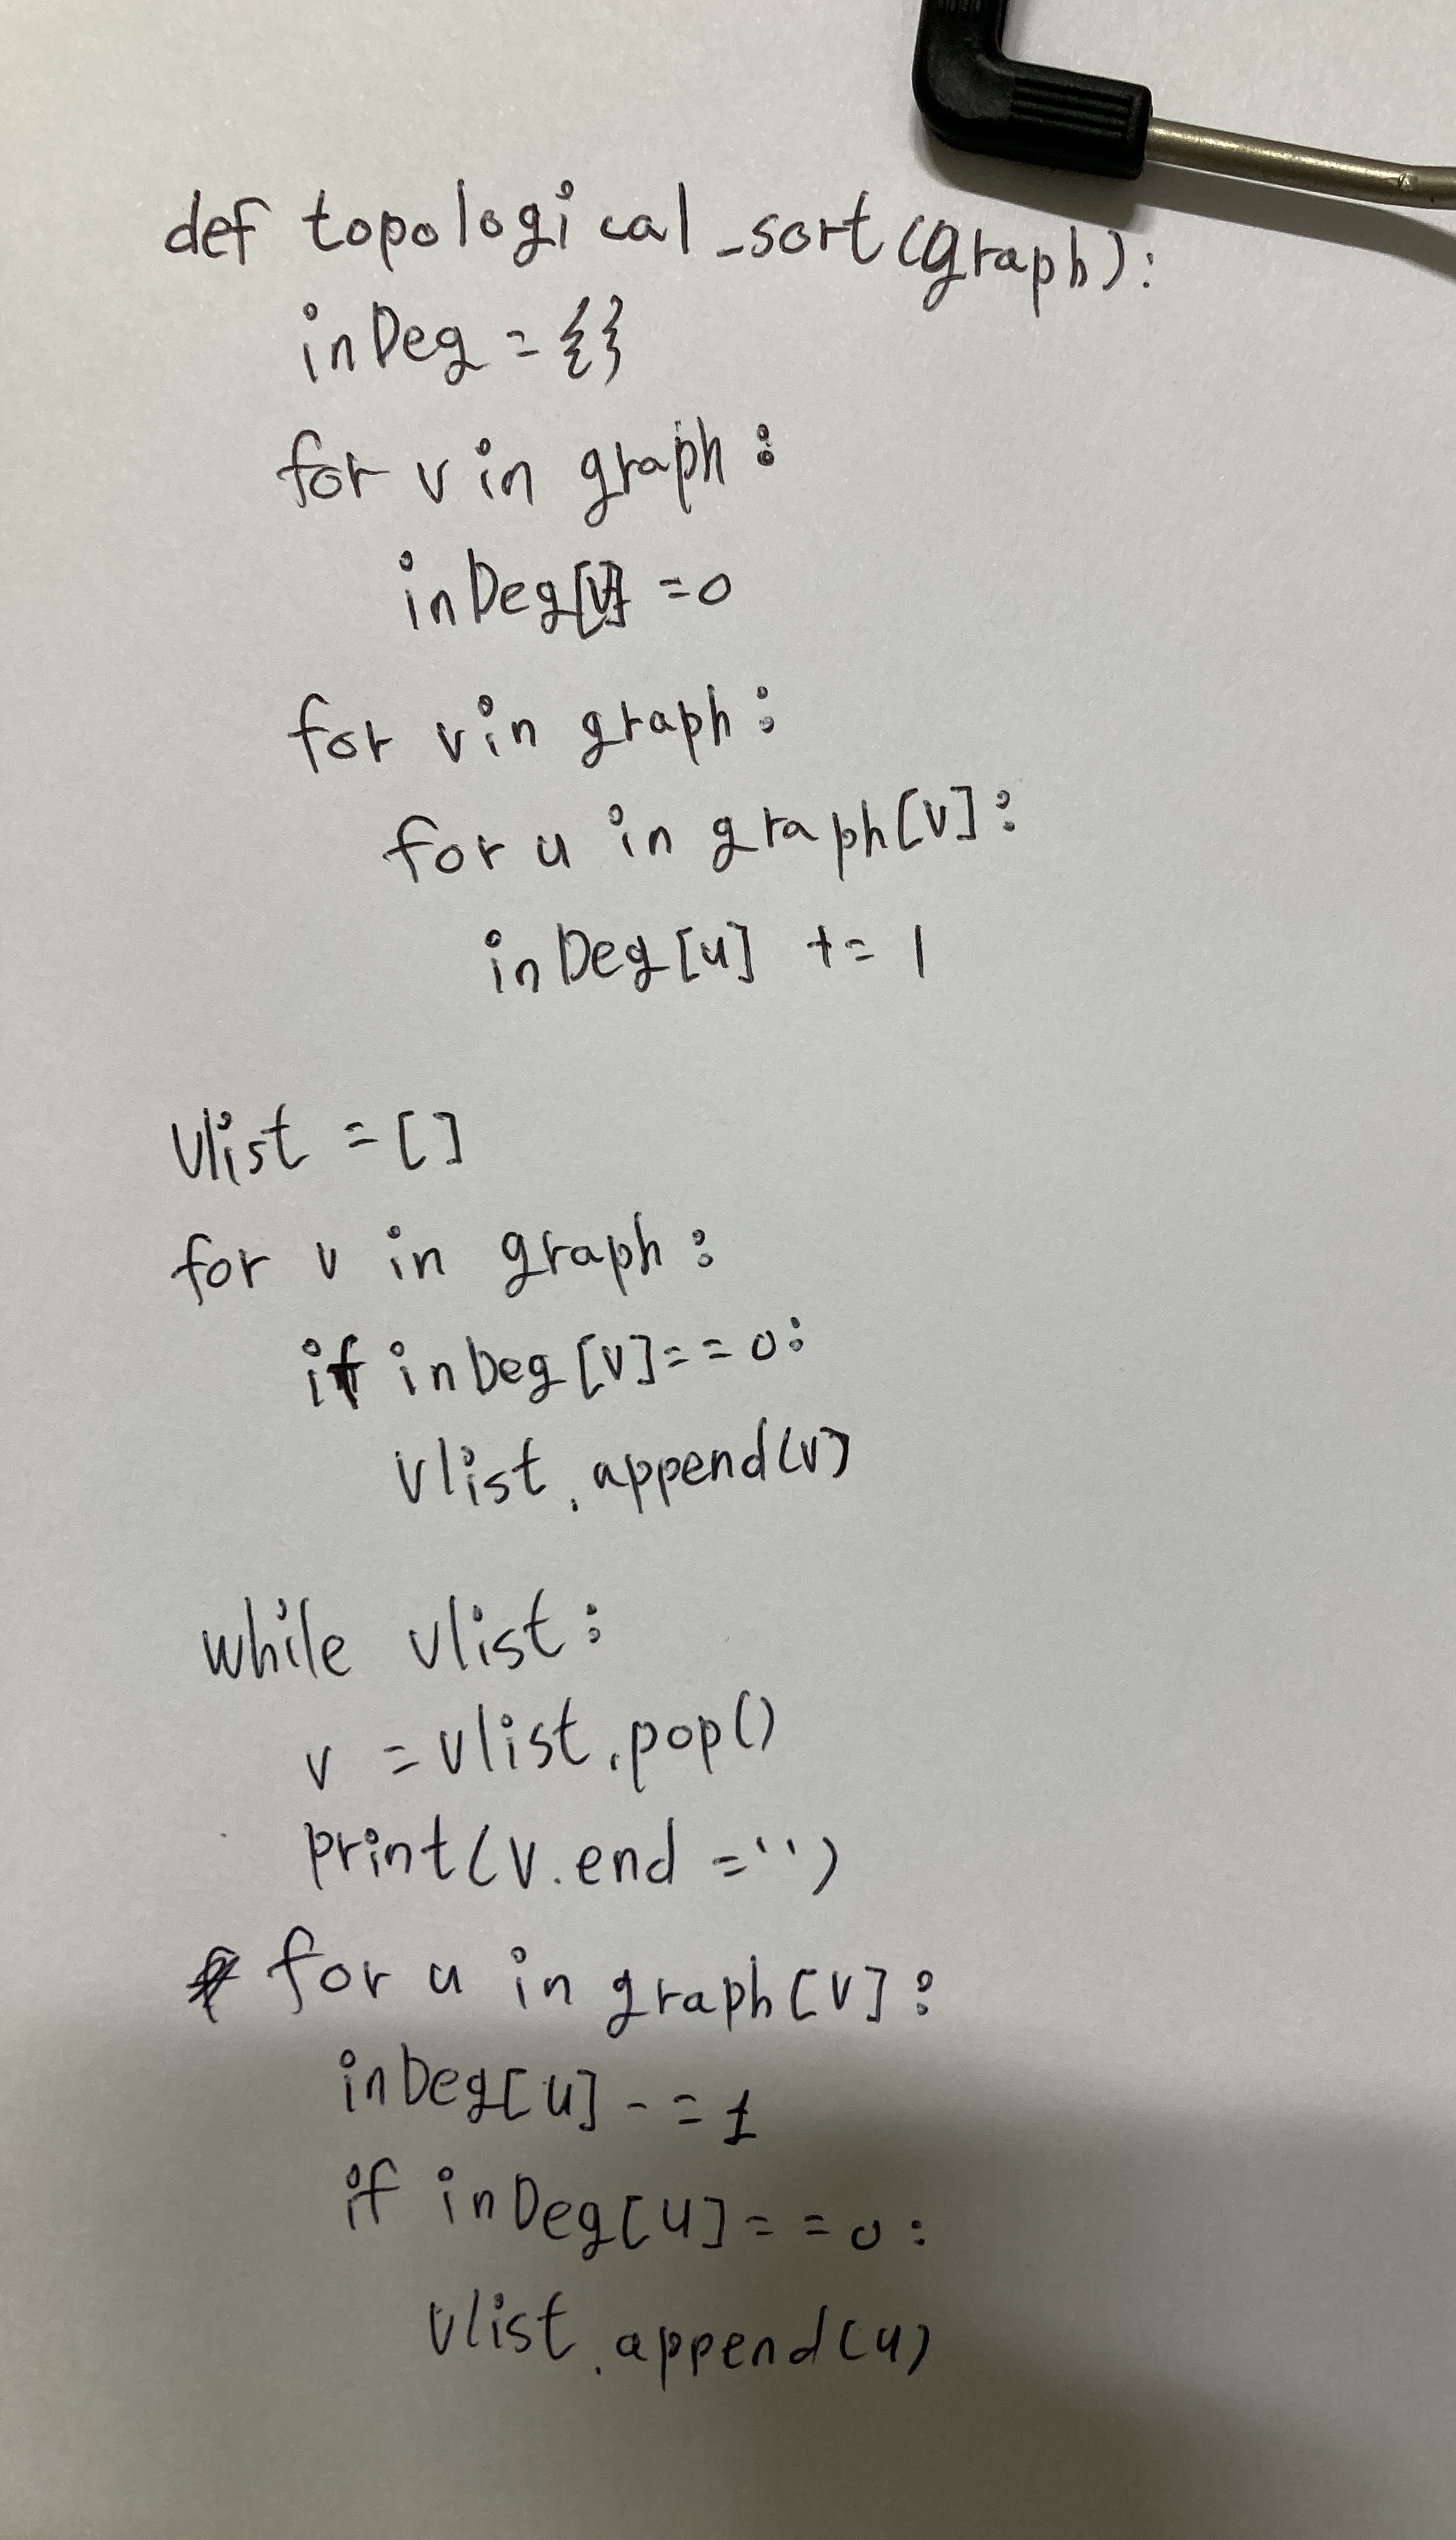 def topological_sort(graph):
inDeg = {}
for v in graph:
inDeg[v] =0
for v in graph:
for u in graph[v]:
inDeg[u] += 1
vlist = []
for v in graph:
if inDeg[v]==0:
vlist.append(v)
while vlist:
v = vlist.pop()
print(v.end ='')
for u in graph[v]:
inDeg[u] -=1
if inDeg[u]==0:
vlist.append(u)